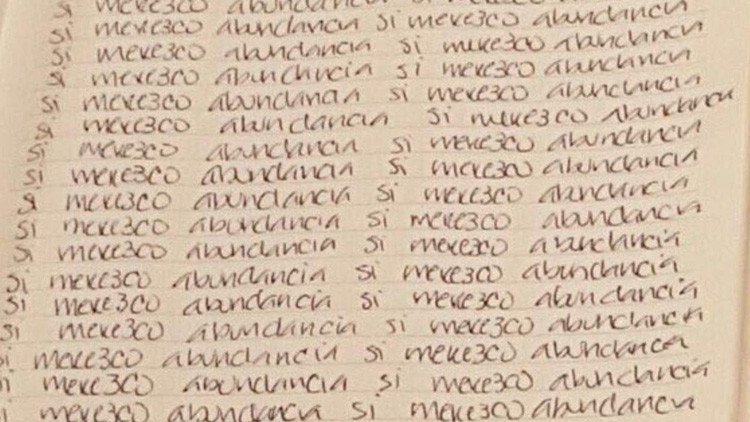 si merezco abundancia
si merezco abundancia si merezco abundancia
si merezco abundancia si merezco abundancia
si merezco abundancia si merezco abundancia
si merezco abundancia si merezco abundancia
si merezco abundancia si merezco abundancia
si merezco abundancia si merezco abundancia
si merezco abundancia si merezco abundancia
si merezco abundancia si merezco abundancia
si merezco abundancia si merezco abundancia
si merezco abundancia si merezco abundancia
si merezco abundancia si merezco abundancia
si merezco abundancia si merezco abundancia
si merezco abundancia si merezco abundancia
si merezco abundancia si merezco abundancia
si merezco abundancia si merezco abundancia
si merezco abundancia si merezco abundancia